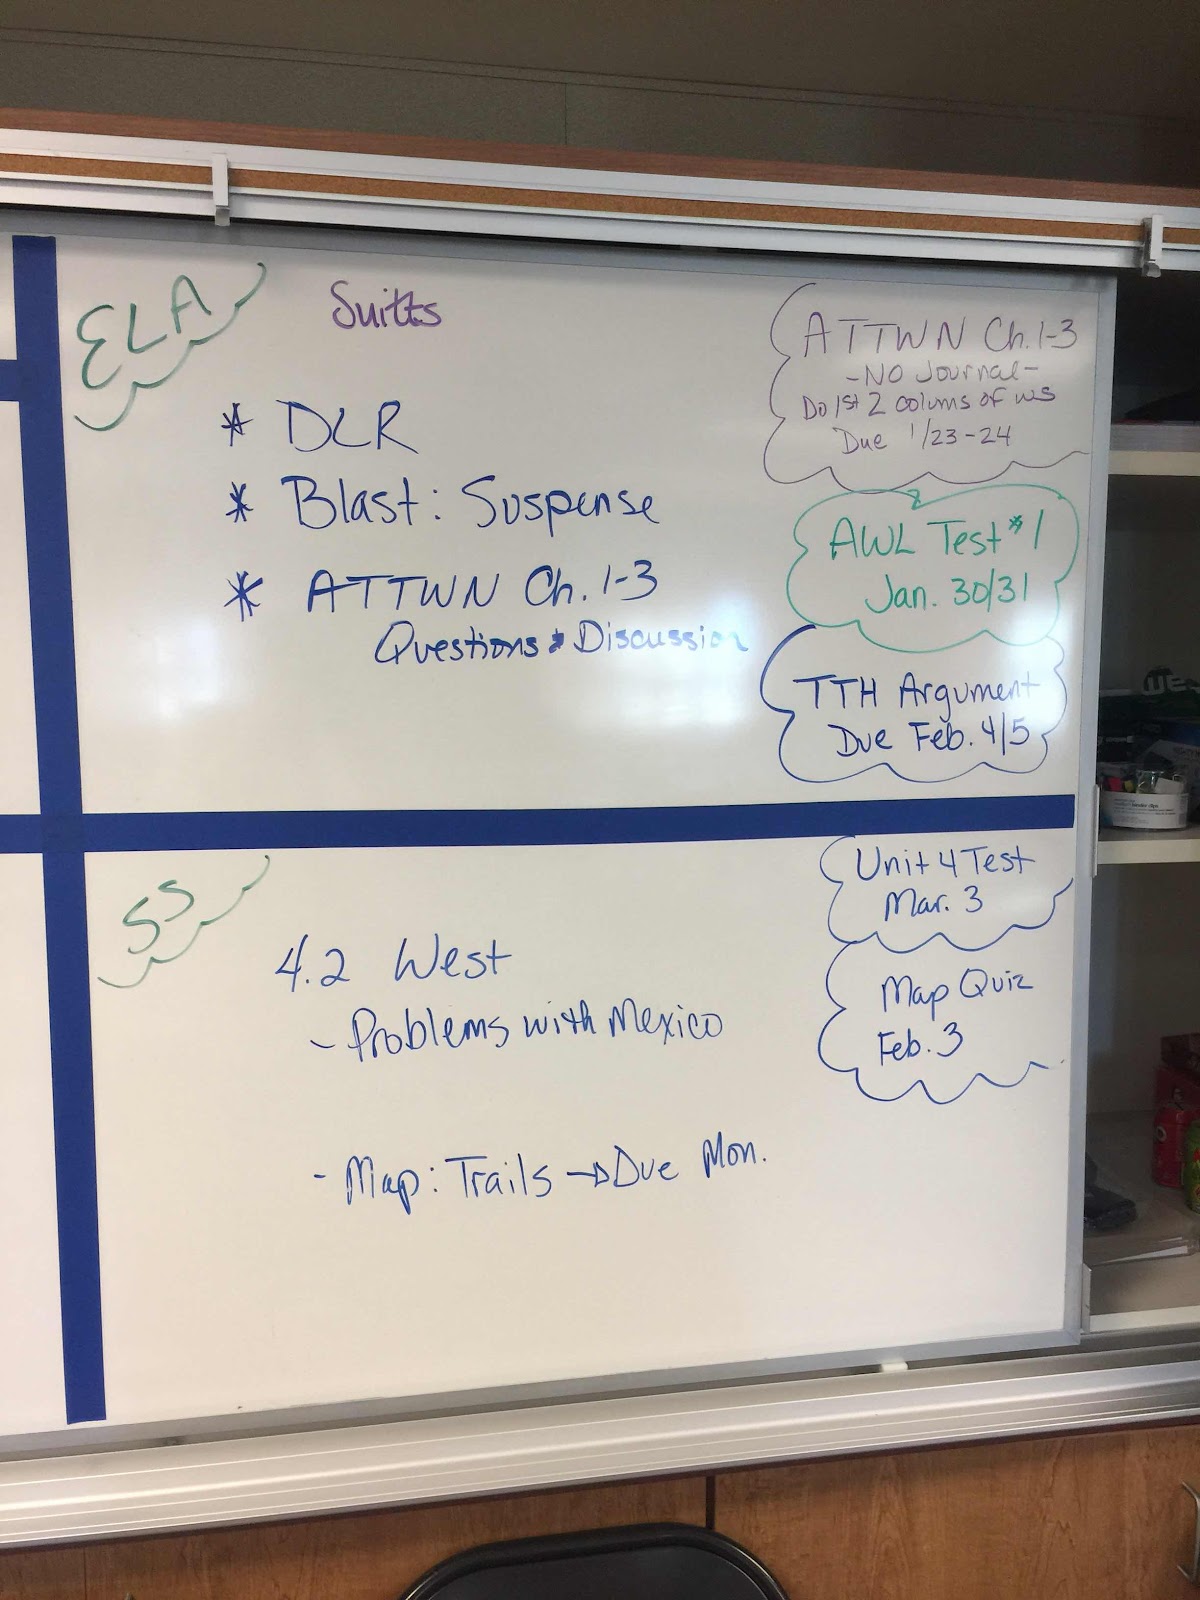 ELA
Suitts
* DLR
* Blast: Suspense
* ATTWN Ch. 1-3
Questions & Discussion
ATTWN Ch. 1-3
-NO Journal-
Do 1st 2 colums of ws
Due 1/23-24
AWL Test #1
Jan. 30/31
TTH Argument
Due Feb. 4/5
SS
4.2 West
- Problems with Mexico
- Map: Trails → Due Mon.
Unit 4 Test
Mar. 3
Map Quiz
Feb. 3